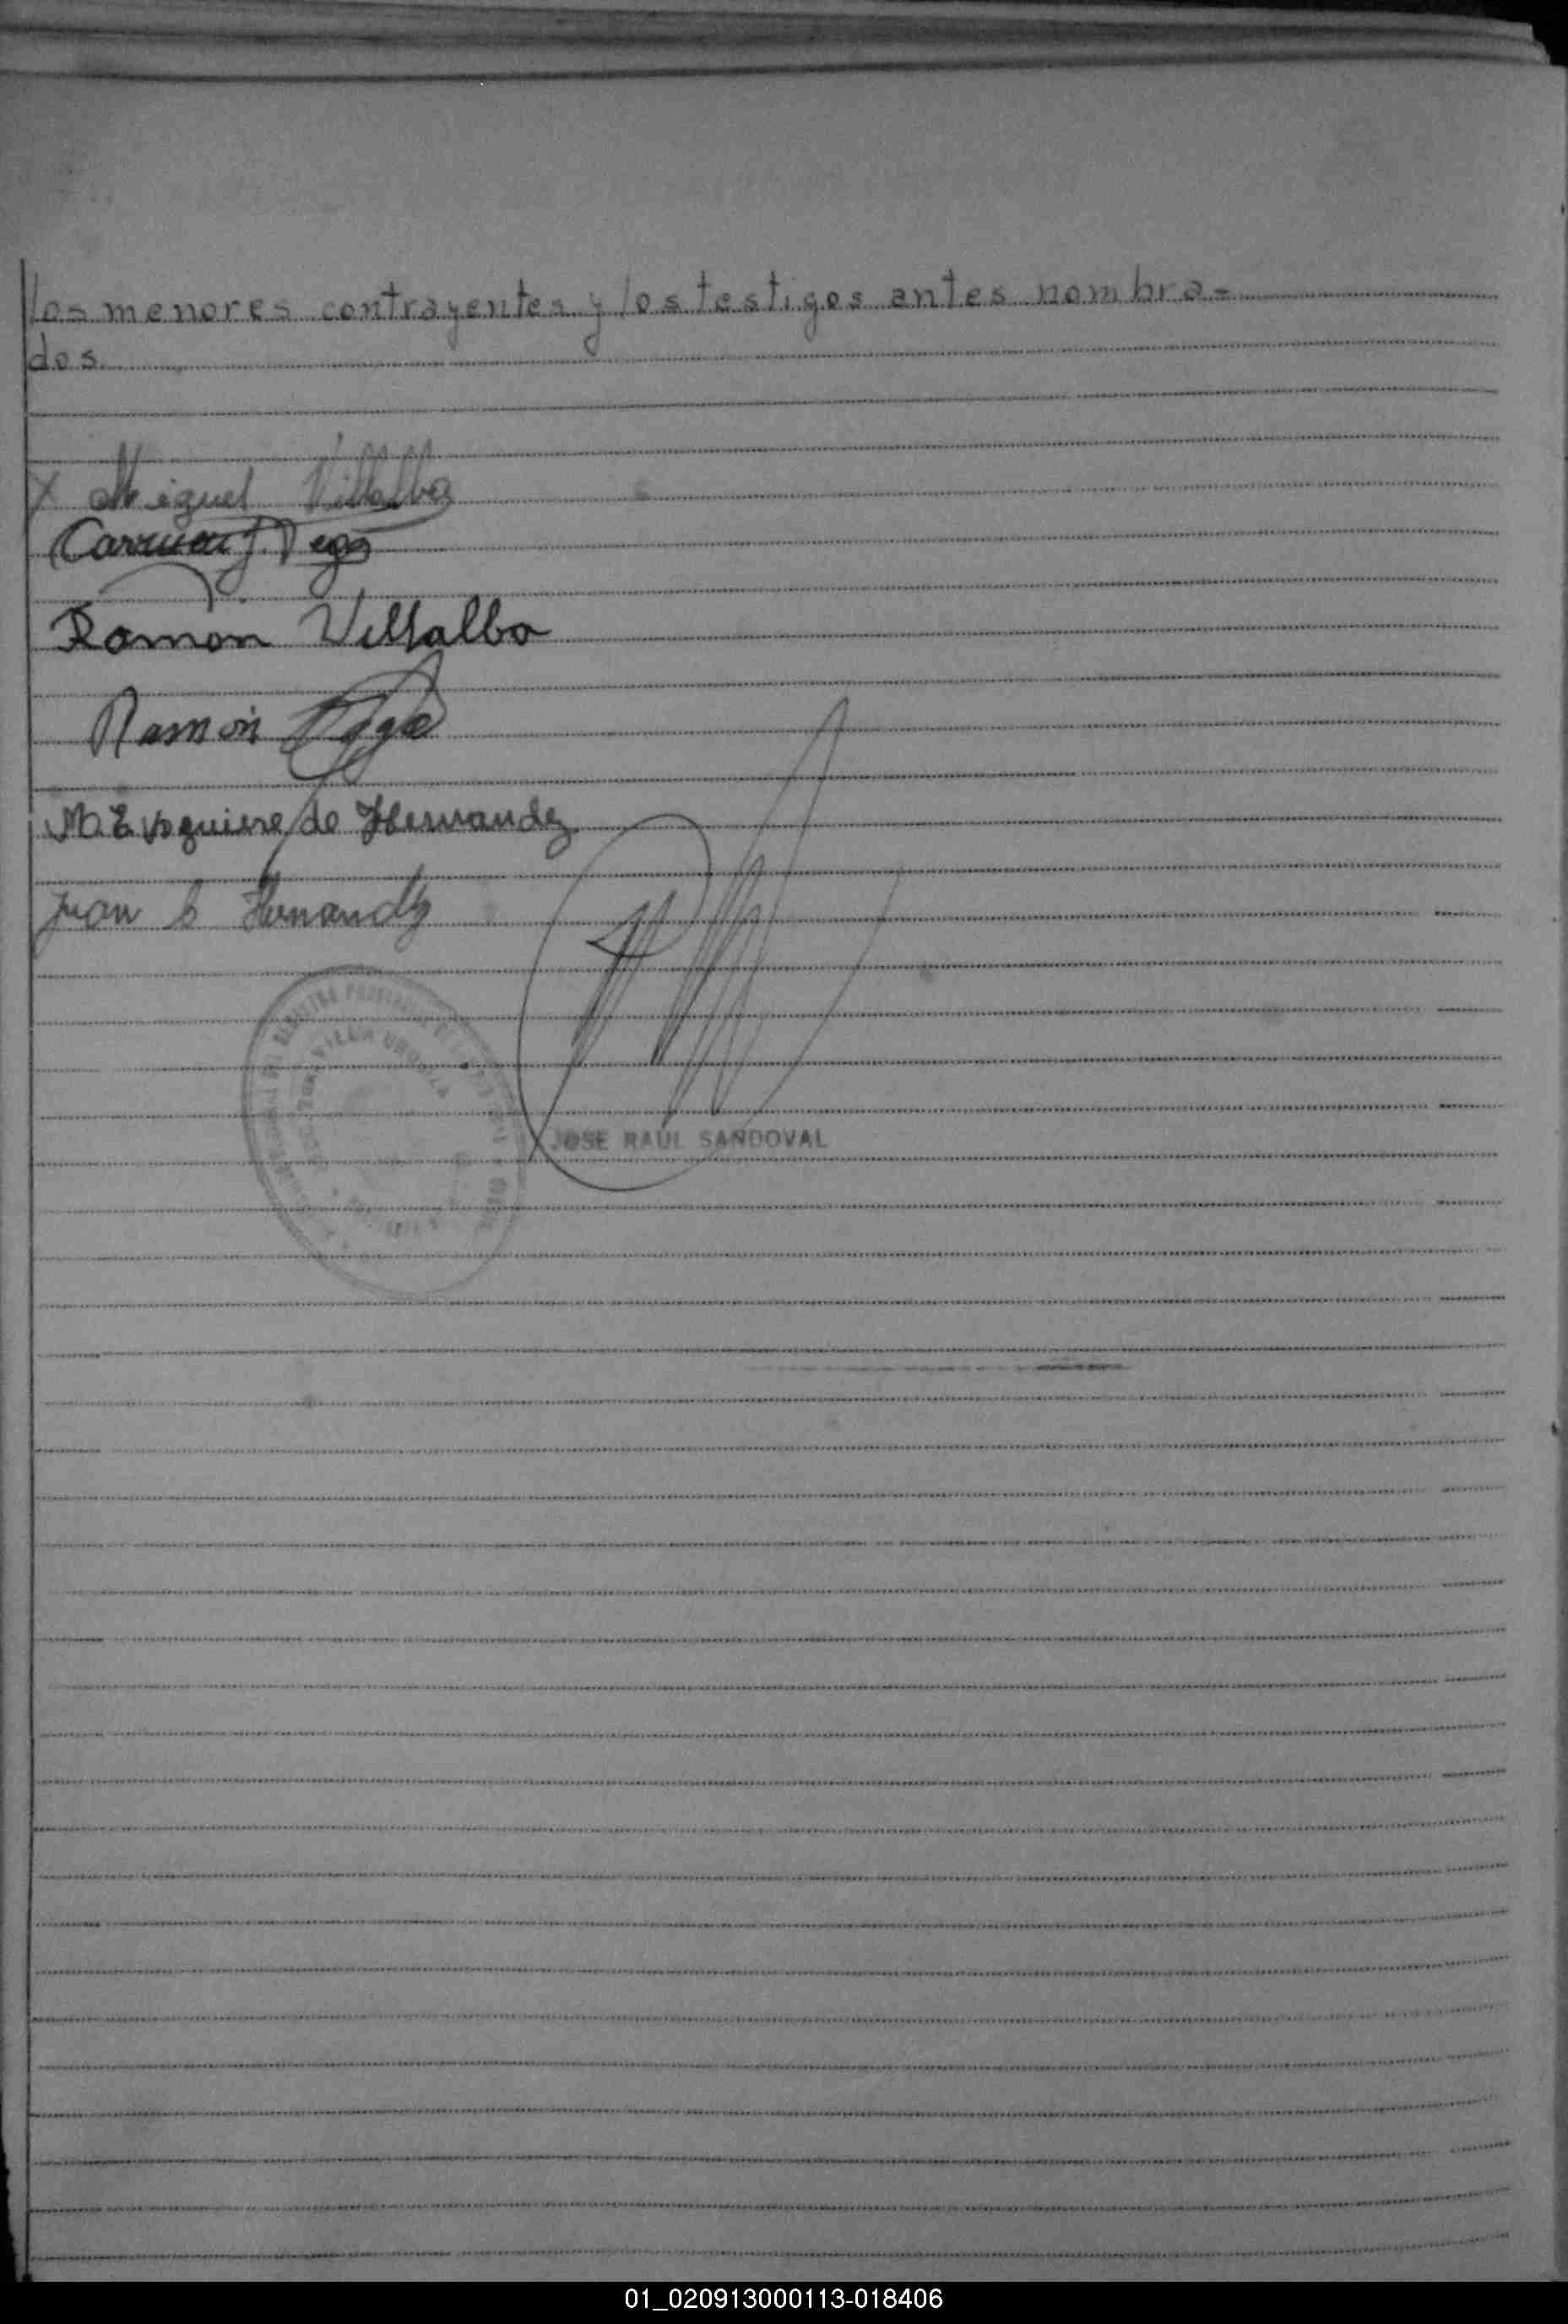 los menores contrayentes y los testigos antes nombra=
dos.
X Miguel Villalba
Carmen J. Vega
Ramon Villalba
Ramón Vega
M. E. de Hernandez
Juan Hernandz
VILLA URQUIZA
JOSE RAUL SANDOVAL
01_020913000113-018406